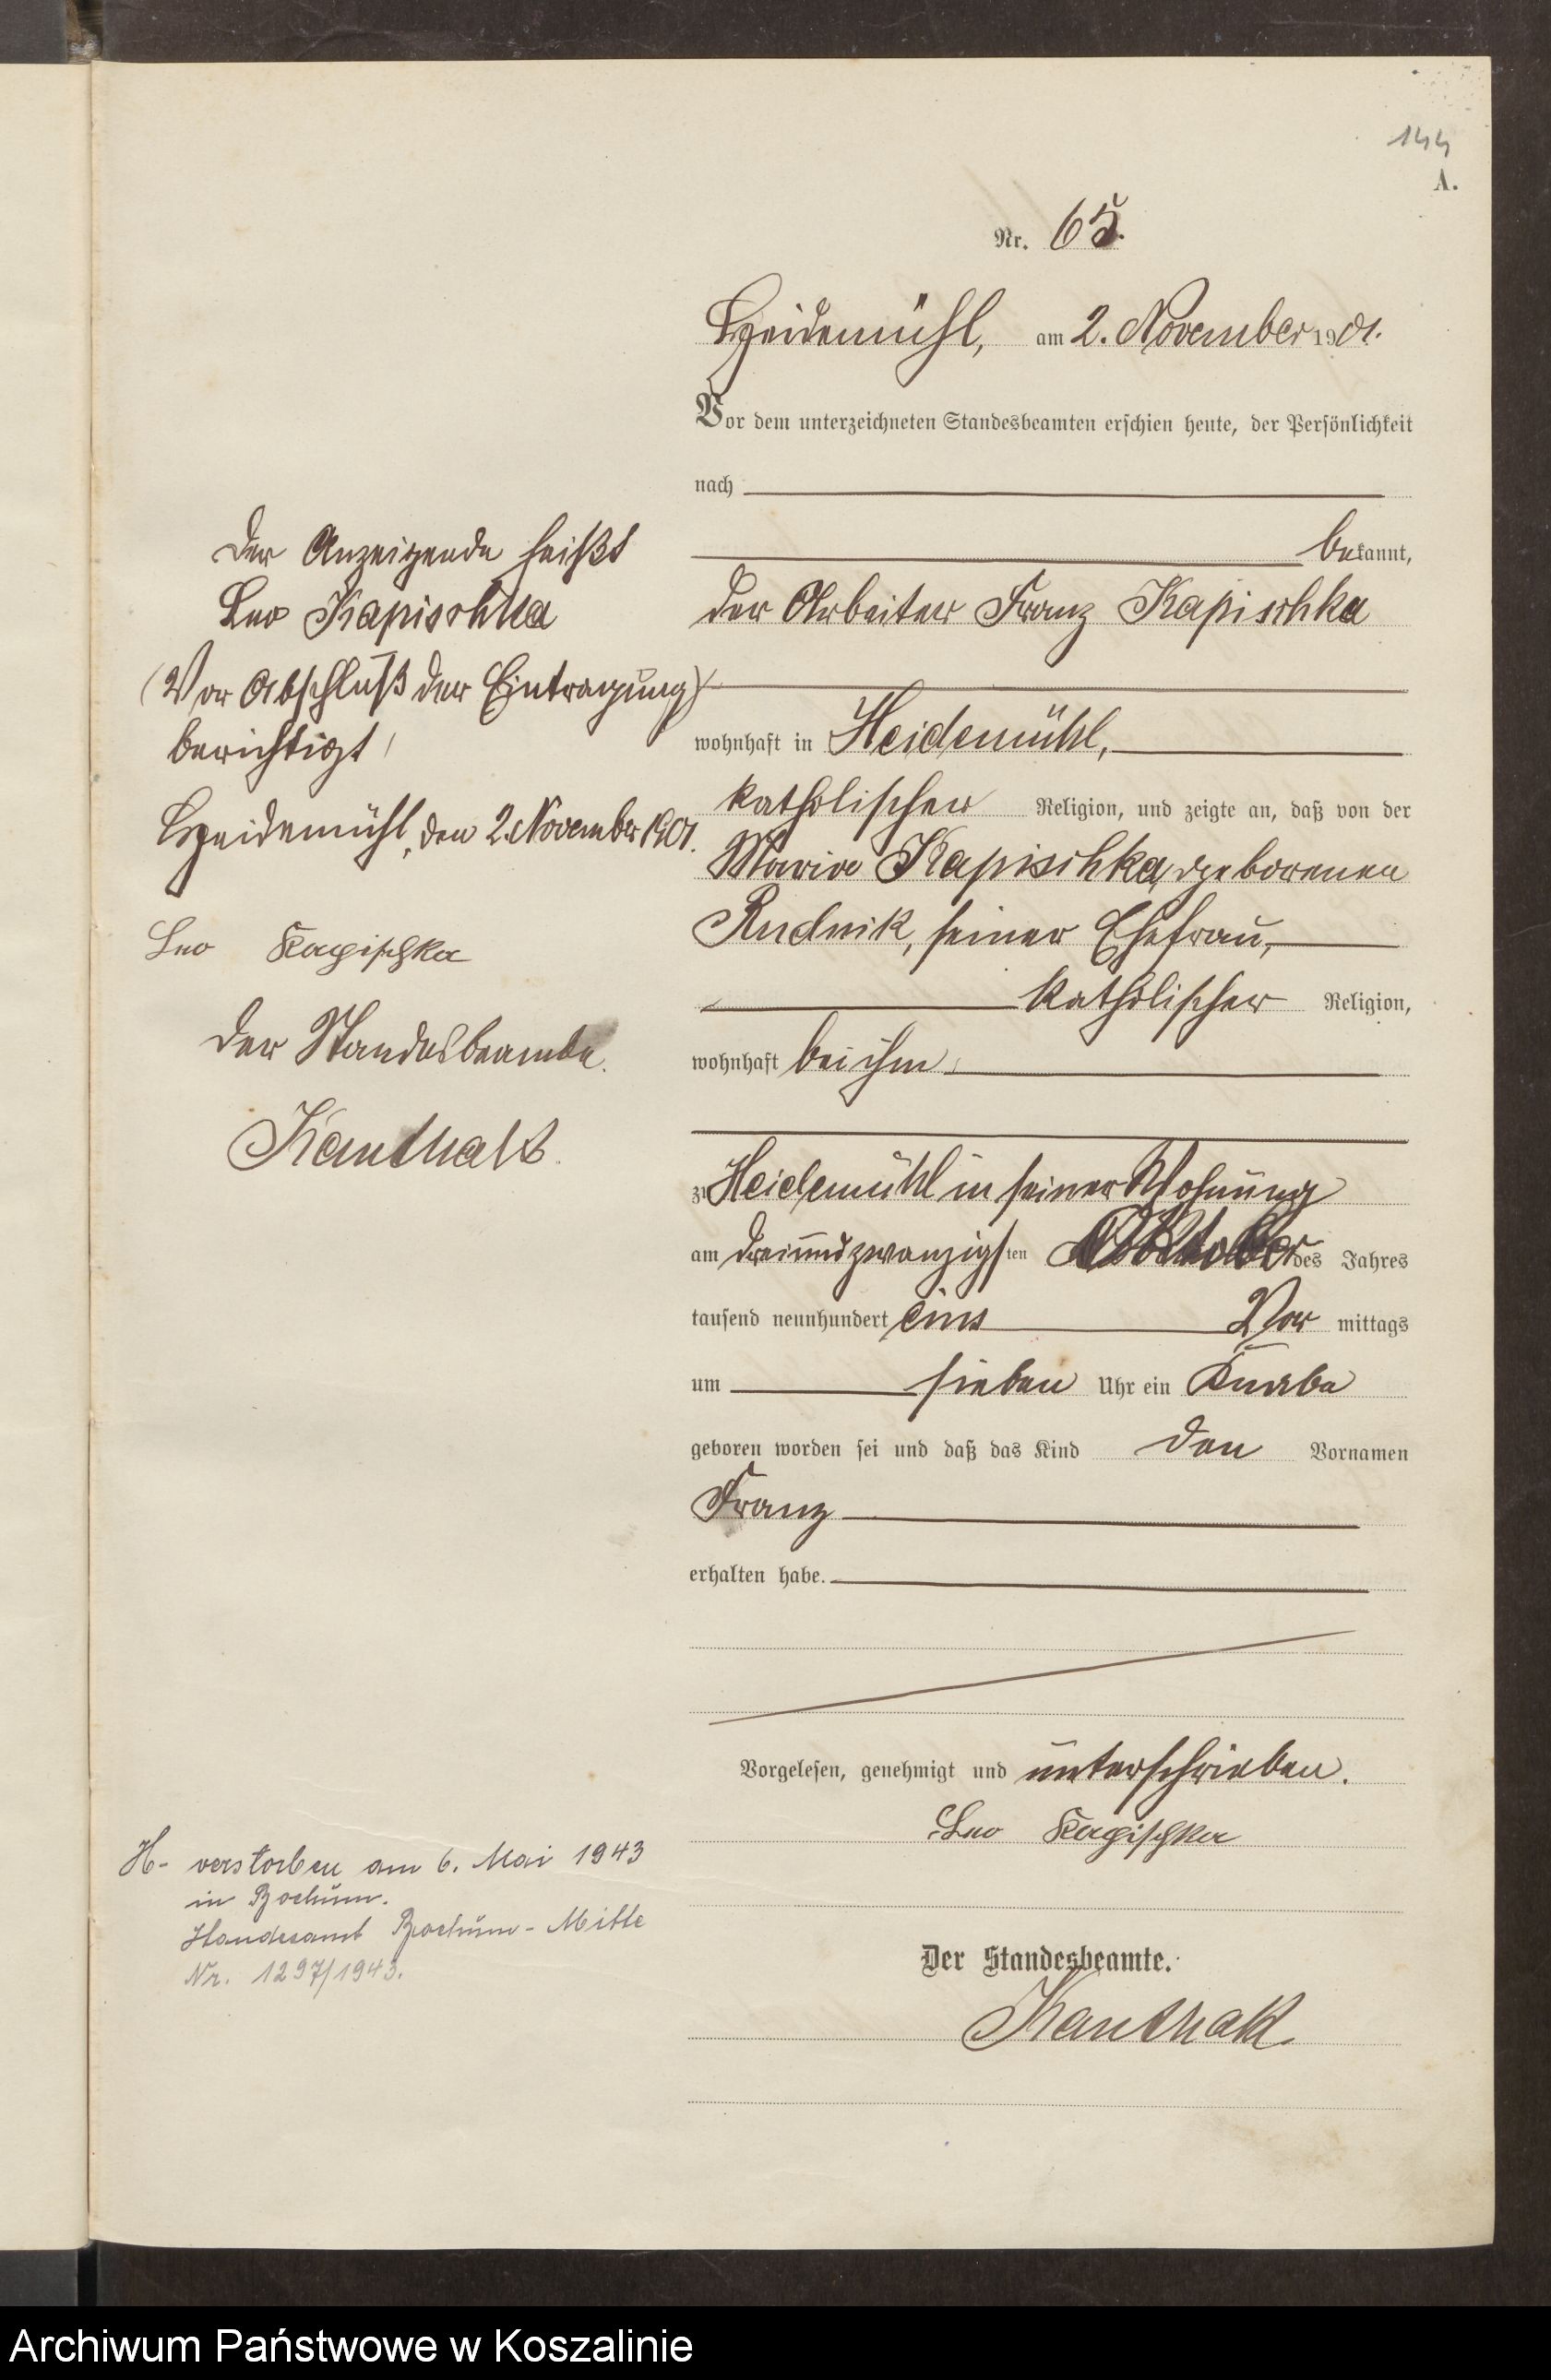 144
A.
Nr. 65.
Heidemühl, am 2. November 1901.
Vor dem unterzeichneten Standesbeamten erschien heute, der Persönlichkeit
nach
bekannt,
der Arbeiter Franz Kapischka
wohnhaft in Heidemühl,
katholischer Religion, und zeigte an, daß von der
Marie Kapischka, geborenen
Rudnik, seiner Ehefrau,
katholischer Religion,
wohnhaft bei ihm,
zu Heidemühl in seiner Wohnung
am dreiundzwanzigsten Oktober des Jahres
tausend neunhundert eins Vor mittags
um sieben Uhr ein Knabe
geboren worden sei und daß das Kind den Vornamen
Franz
erhalten habe.
Vorgelesen, genehmigt und unterschrieben.
Leo Kapischka
Der Standesbeamte.
Kanthak.
Der Anzeigende heißt
Leo Kapischka
(Vor Abschluß der Eintragung)
berichtigt
Heidemühl, den 2. November 1901.
Leo Kapischka
Der Standesbeamte.
Kanthak.
H- verstorben am 6. Mai 1943
in Bochum.
Standesamt Bochum-Mitte
Nr. 1297/1943.
Archiwum Państwowe w Koszalinie